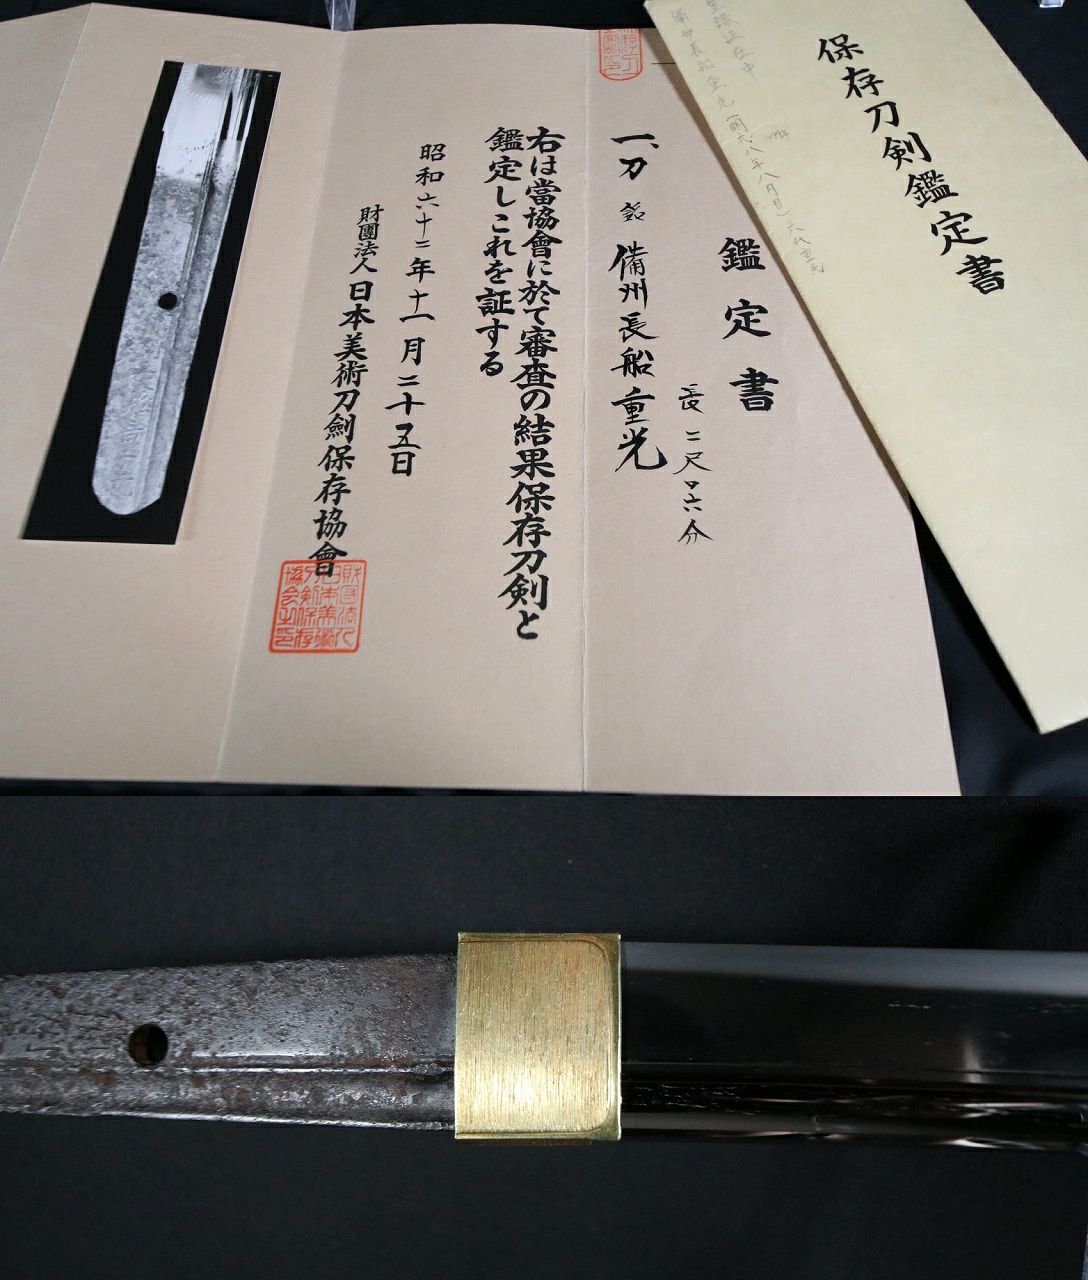 鑑定書
一、刀 銘 備州長船重光
長二尺〇六分
右は當協會に於て審査の結果保存刀剣と
鑑定しこれを証する
昭和六十二年十一月二十五日
財團法人日本美術刀劍保存協會
財団法人日本美術刀剣保存協会之印
保存刀剣鑑定書